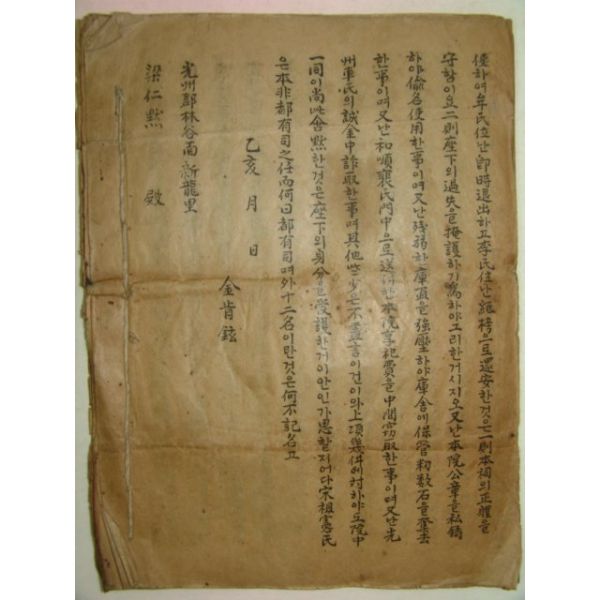 하여 牟氏位난 卽時退出하고 李氏位난 으로 還安한것은 一則本祠의 正軆을
守함이요 二則座下의 過失을 掩護하기 爲하야 그리한거시지오 又난 本院公章을 私
하야 偸名使用한事이며 又난 殘弱한 庫直을 強壓하야 庫舍에 保管 數石을 去
한事이며 又난 和順裵氏門中으로 送 한 本院享祀費을 中間窃取한事이며 又난 光
州牟氏의 誠金中詐取한事며 其他些少은 不 言이건이와 上項幾件에 対하야 院中
一同이 尚此含黙한것은 座下의 身分을 愛護한거이 안인가 思할지어다 宋祖憲氏
은 本非都有司之任而何曰都有司며 外十二名이란것은 何不記名고
乙亥 月 日
金肯鉉
光州郡林谷面新龍里
梁仁黙 殿